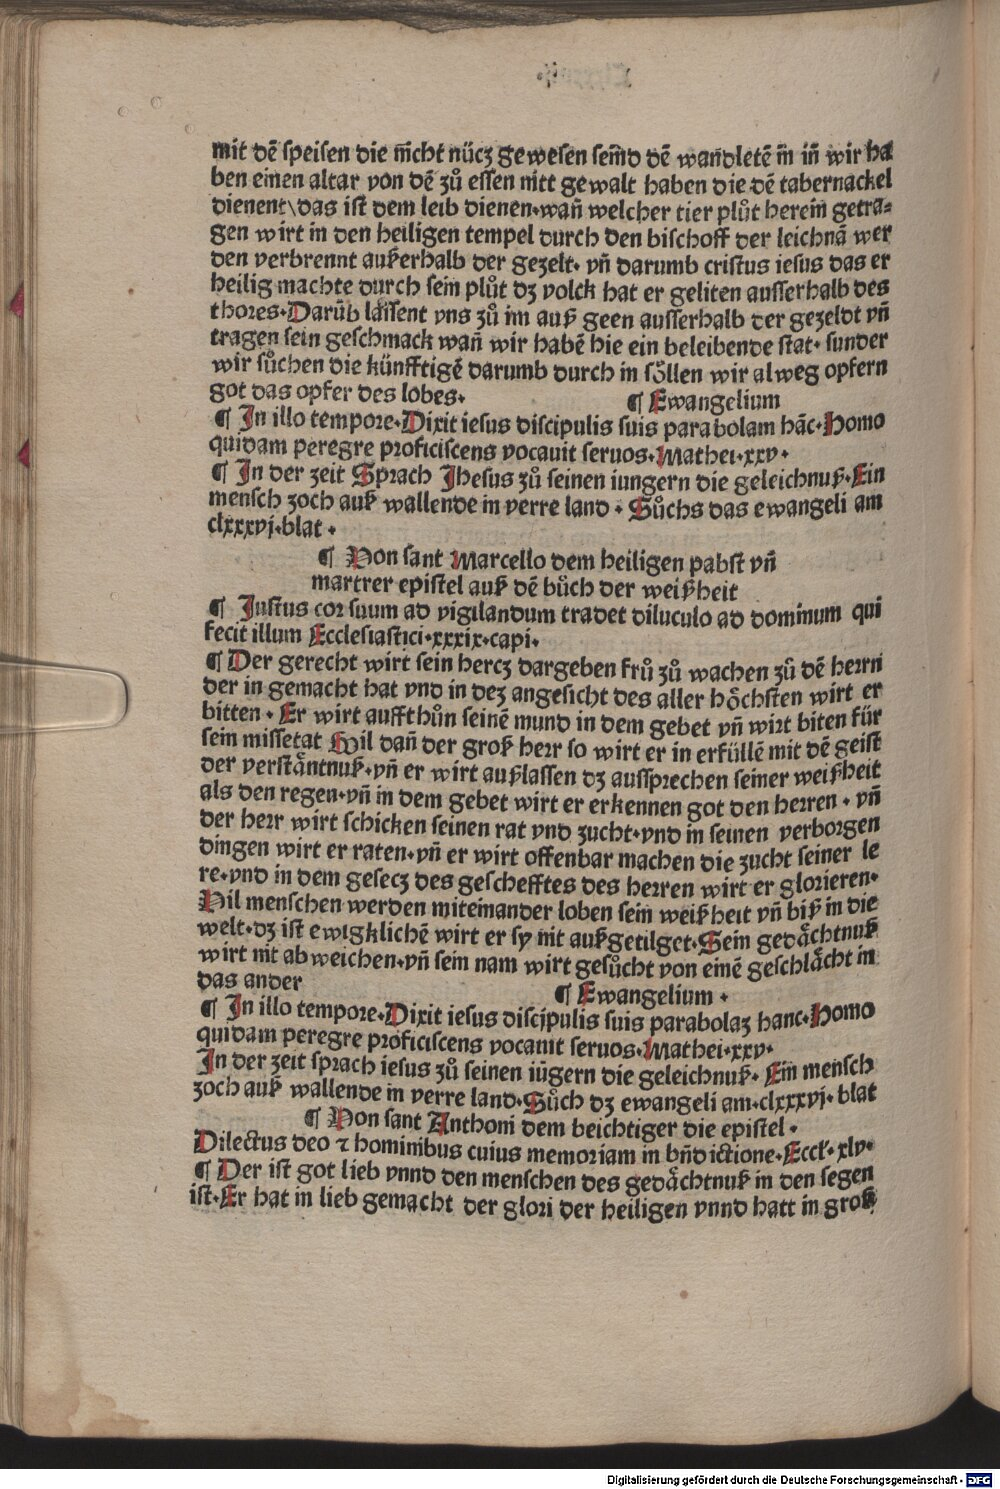 mit dē speisen die nicht nücz gewesen seind dē wandletē in in̄ wir ha
ben einen altar von dē zů essen nitt gewalt haben die dē tabernackel
dienent\das ist dem leib dienen·wan̄ welcher tier plůt herein getra⸗
gen wirt in den heiligen tempel durch den bischoff der leichnā wer
den verbrennt außerhalb der gezelt· vn̄ darumb cristus iesus das er
heilig machte durch sein plůt dz volck hat er geliten ausserhalb des
thores·Darūb lassent vns zů im auß geen ausserhalb der gezeldt vn̄
tragen sein geschmack wan̄ wir habē hie ein beleibende stat· sunder
wir sůchen die künfftigē darumb durch in söllen wir alweg opfern
got das opfer des lobes·
¶ Ewangelium
¶ In illo tempore·Dixit iesus discipulis suis parabolam hāc·Homo
quidam peregre proficiscens vocauit seruos·Mathei·xxv·
¶ In der zeit Sprach Jhesus zů seinen iungern die geleichnuß·Ein
mensch zoch auß wallende in verre land · Sůchs das ewangeli am
clxxxvj·blat·
¶ Von sant Marcello dem heiligen pabst vn̄
martrer epistel auß dē bůch der weißheit
¶ Justus cor suum ad vigilandum tradet diluculo ad dominum qui
fecit illum Ecclesiastici·xxxix·capi·
¶ Der gerecht wirt sein hercz dargeben frů zů wachen zů dē herrn
der in gemacht hat vnd in dez angesicht des aller höchsten wirt er
bitten · Er wirt auffthůn seinē mund in dem gebet vn̄ wirt biten für
sein missetat Wil dan̄ der groß herr so wirt er in erfüllē mit dē geist
der verstäntnuß·vn̄ er wirt außlassen dz aussprechen seiner weißheit
als den regen·vn̄ in dem gebet wirt er erkennen got den herren · vn̄
der herr wirt schicken seinen rat vnd zucht·vnd in seinen verborgen
dingen wirt er raten·vn̄ er wirt offenbar machen die zucht seiner le
re·vnd in dem gesecz des geschefftes des herren wirt er glorieren·
Vil menschen werden miteinander loben sein weißheit vn̄ biß in die
welt·dz ist ewigklichē wirt er sy nit außgetilget·Sein gedächtnuß
wirt nit abweichen·vn̄ sein nam wirt gesůcht von einē geschlächt in
das ander
¶ Ewangelium ·
¶ In illo tempore·Dixit iesus discipulis suis parabolaz hanc·Homo
quidam peregre proficiscens vocauit seruos·Mathei·xxv·
In der zeit sprach iesus zů seinen iūgern die geleichnuß· Ein mensch
zoch auß wallende in verre land·Sůch dz ewangeli am·clxxxvj·blat
¶ Von sant Anthoni dem beichtiger die epistel·
Dilectus deo ⁊ hominibus cuius memoriam in bn̄dictione·Eccl̄·xlv·
¶ Der ist got lieb vnnd den menschen des gedächtnuß in den segen
ist·Er hat in lieb gemacht der glori der heiligen vnnd hatt in groß
Digitalisierung gefördert durch die Deutsche Forschungsgemeinschaft - DFG